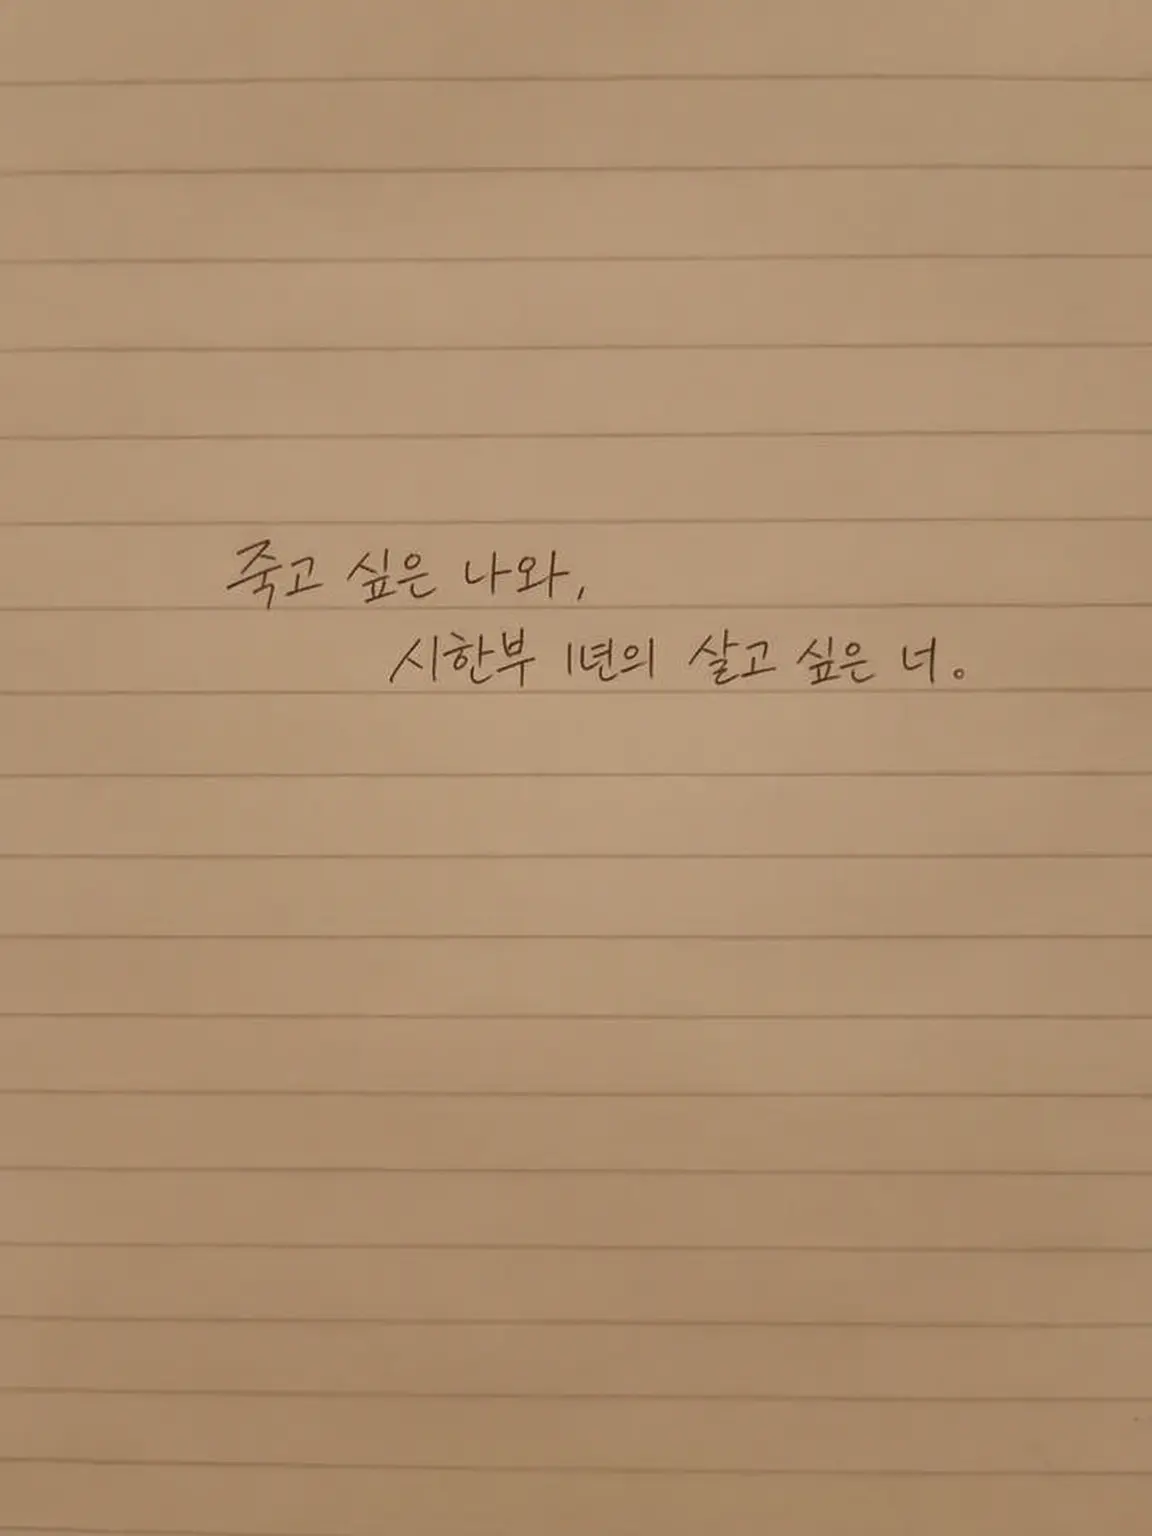 죽고 싶은 나와,
시한부 1년의 살고 싶은 너。